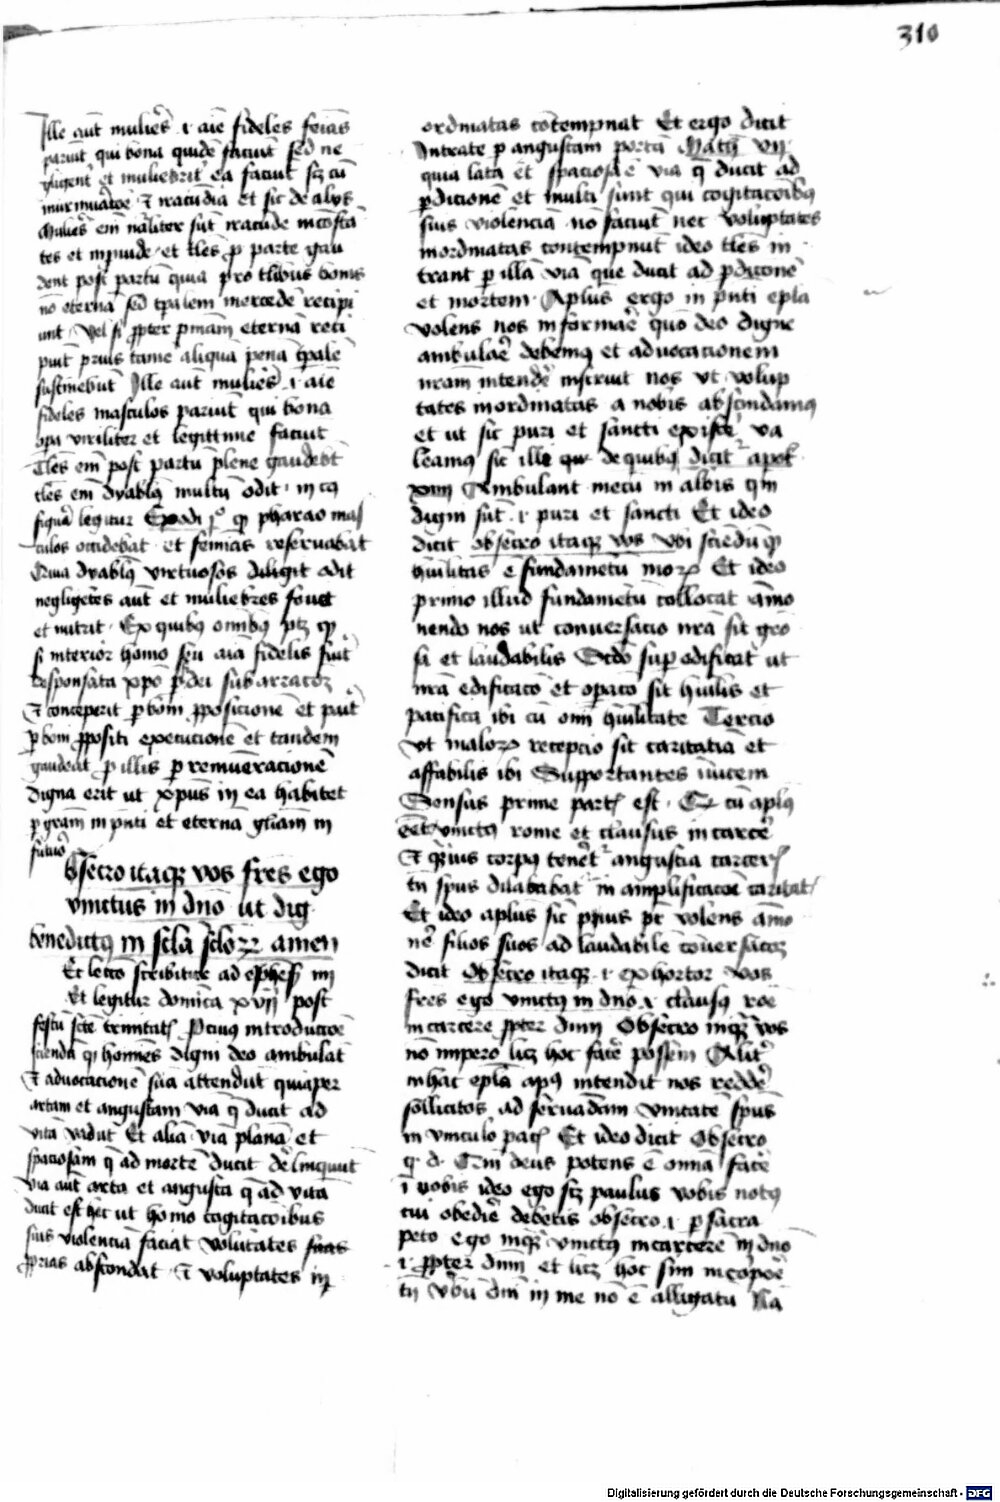 310
Ille aūt mulieēs .i. aīe fideles feīas
pariūt qui bona quidē faciūt sed ne
gligent̄ et muliebrit̄ ea faciūt sꝫ cū
murmuatōe ⁊ iracūdia et sic de alijs
Mulieēs em̄ naliter sūt iracūde incōstā
tes et inuide et tles ꝓ parte gau
dent post partū quia pro tlibus bonis
nō eternā sed tp̄alem mercedē recipi
unt vel si ꝓpter p̄miam eternā reci
piūt prius tamē aliqua penā tp̄ale
sustinebūt Ille aūt mulieēs .i. aīe
fideles masculos pariūt qui bona
opa viriliter et legittime faciūt
Tles em̄ post partū plene gaudebt
tles em̄ dyablꝰ multū odit in cꝰ
figurā legitur Exodi p̊ ꝙ pharao mas
culos occidebat et feminas reseruabat
Quia dyablꝰ virtuosos diligit odit
negligētes aūt et muliebres fouet
et nutrit Ex quibꝰ omibꝰ ptꝫ ꝙ
si interior homo seu aīa fidelis fuit
desponsata xp̄o ꝑ dei subarracōꝫ
⁊ conceperit ꝑ bom̄ ꝓposicionē et piat
ꝑ bom ꝓpositi execucionē et tandem
gaudeat ꝑ illis ꝑ remūeracionē
digna erit ut xpūs in ea habitet
ꝑ gram̄ in pn̄ti et eternā gliam in
futuō
bsecro itaqꝫ vos fres ego
vinctus in dn̄o ut dig
benedictꝰ in scl̄a scl̄oꝝ amen
Et lecto scribitur ad ephes iiij
Et legitur domīca xvij post
festū scē trinitatꝭ Pciuꝰ introductōe
sciendū ꝙ homines digni deo ambulāt
⁊ aduocacionē suā attendūt quia per
artam et angustam viā q̄ ducit ad
vitā vadūt Et aliā viā planā et
spaciosam q̄ ad mortē ducit delinquūt
via aūt arta et angusta q̄ ad vitā
ducit est hec ut homo cogitacōibus
suis violenciā faciat volūtates suas
ꝓprias abscondat ⁊ voluptates in
ordinatas cōtempnat Et ergo dicit
Intrate ꝑ angustam portā Math vij
quia lata ē et spaciosa ē via q̄ ducit ad
ꝑdicionē et multi sunt qui cogitacōibꝰ
suis violenciā nō faciūt nec voluptates
inordinatas contempnūt ideo tles in
trant ꝑ illā viā que ducit ad ꝑdicōnē
et mortem Apl̄us ergo in pn̄ti epl̄a
volens nos informaē quō deo digne
ambulaē debemꝰ et aduocacionem
nr̄am intendē instruit nos ut volup
tates inordinatas a nobis abscindamꝰ
et ut sic puri et sancti existē va
leamꝰ sic illi de quibꝰ dicit̄ apoꝭ
xiiij Ambulant mecū in albis qm̄
digni sūt .i. puri et sancti Et ideo
dicit obsecro itaqꝫ vos vbi sciēdū ꝙ
hūilitas ē fundamētū moꝝ Et ideo
primo illud fundamētū collocat āmo
nendo nos ut conuersacio nr̄a sit gro
sa et laudabilis Scdō suꝑ edificat ut
nr̄a edificacō et oꝑacō sit hūilis et
pacifica ibi cū omī hūilitate Tercio
ut maloꝝ recepcio sit caritatīa et
affabilis ibi Supportantes inuicem
Sensus prime partꝭ est Qꝫ cū aplꝰ
eēt vinctꝰ rome et clausus in carcē
⁊ q̄uis corpꝰ tenēt̄ angustia carcerꝭ
tn̄ spūs dilatabat̄ in amplificacōe caritatꝭ
Et ideo aplūs sic pius pr̄ volens āmo
nē filios suos ad laudabilē cōuersacōꝫ
dicit Obsecro itaqꝫ .i. exhortor vos
fres ego vinctꝰ in dn̄o .i. clausꝰ roē
in carcere ꝓpter dnm̄ Obsecro inqꝫ vos
nō impero licꝫ hoc facē possem Alit̄
in hac epl̄a aplꝰ intendit nos reddē
sollicitos ad seruandam vnitatē spūs
in vinculo pacꝭ Et ideo dicit Obsecro
q. d. Qm̄ deus potens ē omīa facē
ī uobis ideo ego sꝫ paulus vobis notꝰ
cui obedīē debetis obsecro .i. ꝑ sacra
peto ego inqꝫ vinctꝰ in carcere in dn̄o
.i. ꝓpter dnm̄ et licꝫ hoc sim in corpoē
tn̄ v̄bū dn̄i in me nō ē alligatū Na
Digitalisierung gefördert durch die Deutsche Forschungsgemeinschaft - DFG